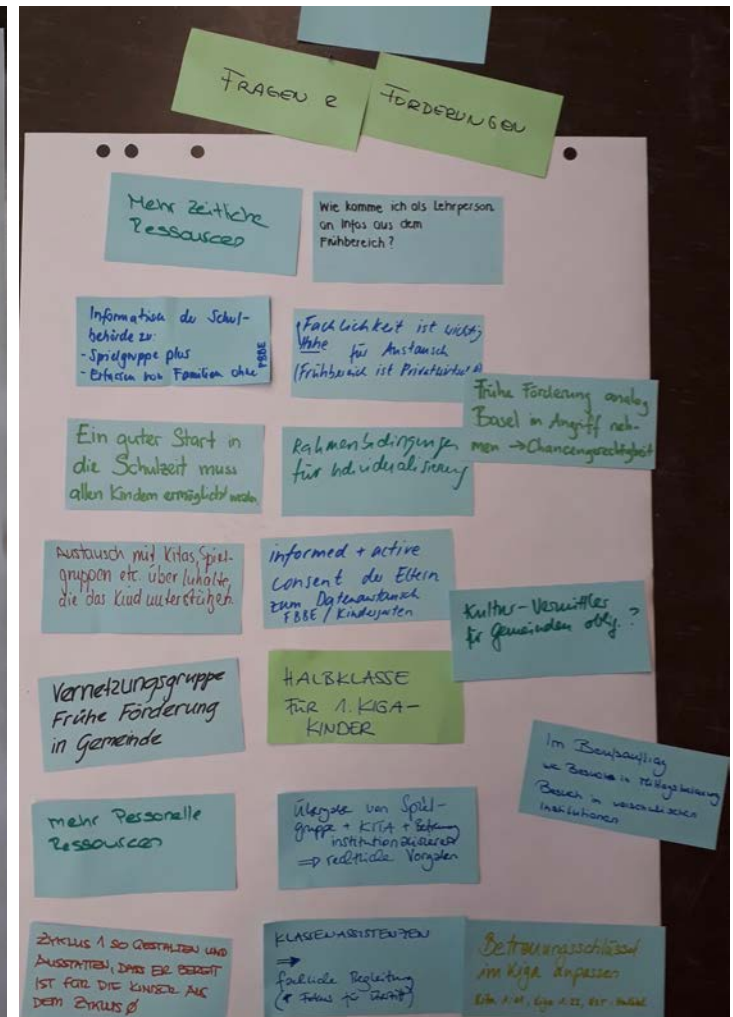 FRAGEN &
FORDERUNGEN
Mehr zeitliche
Ressourcen
Wie komme ich als Lehrperson
an Infos aus dem
Frühbereich?
Information der Schul-
behörde zu:
- Spielgruppe plus
- Erfassen von Familien ohne FBBE
Fachlichkeit ist wichtig
Hohe für Austausch
(Frühbereich ist
Frühe Förderung analog
Basel in Angriff neh-
men → Chancengerechtigkeit
Ein guter Start in
die Schulzeit muss
allen Kindern ermöglicht werden
Rahmenbedingungen
für Individualisierung
Austausch mit Kitas, Spiel-
gruppen etc. über Inhalte,
die das Kind unterstützen.
informed + active
consent der Eltern
zum Datenaustausch
FBBE / Kindergarten
Kultur-Vermittler
für Gemeinden oblig.?
Vernetzungsgruppe
Frühe Förderung
in Gemeinde
HALBKLASSE
FÜR 1. KIGA-
KINDER
Im Berufsauftrag
Besuche in
Besuch in vorschulischen
Institutionen
mehr Personelle
Ressourcen
Übergabe von Spiel-
gruppe + KITA +
institutionalisieren
⇒ rechtliche Vorgaben
ZYKLUS 1 SO GESTALTEN UND
AUSSTATTEN, DASS ER BEREIT
IST FÜR DIE KINDER AUS
DEM ZYKLUS Ø
KLASSENASSISTENZEN
⇒
fachliche Begleitung
Betreuungsschlüssel
im Kiga anpassen